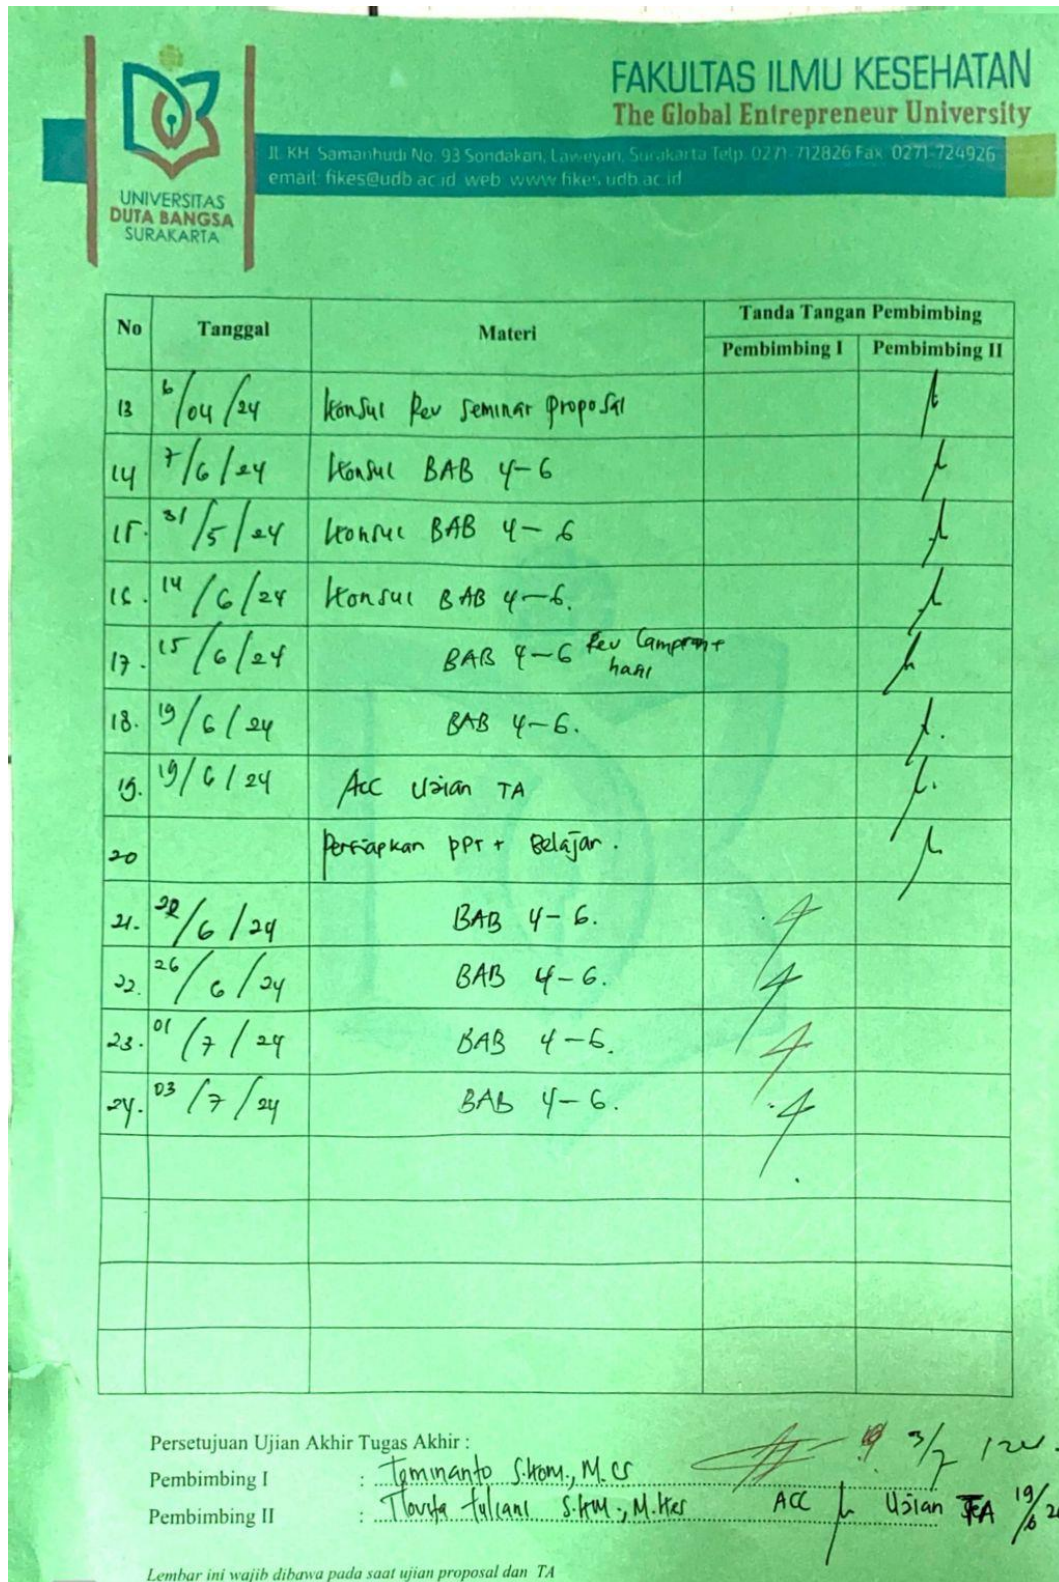 FAKULTAS ILMU KESEHATAN
The Global Entrepreneur University
Jl. KH. Samanhudi No. 93 Sondakan, Laweyan, Surakarta Telp. 0271-712826 Fax. 0271-724926
email: fikes@udb.ac.id web: www.fikes.udb.ac.id
UNIVERSITAS
DUTA BANGSA
SURAKARTA
No Tanggal Materi Tanda Tangan Pembimbing
Pembimbing I Pembimbing II
13 6/04/24 Konsul Rev Seminar Proposal
14 7/6/24 Konsul BAB 4-6
15. 31/5/24 Konsul BAB 4-6
16. 14/6/24 Konsul BAB 4-6.
17. 15/6/24 BAB 4-6 Rev Lampiran + hasil
18. 19/6/24 BAB 4-6.
19. 19/6/24 Acc Ujian TA
20 Persiapkan PPT + Belajar.
21. /6/24 BAB 4-6.
22. 26/6/24 BAB 4-6.
23. 01/7/24 BAB 4-6.
24. 03/7/24 BAB 4-6.
Persetujuan Ujian Akhir Tugas Akhir :
Pembimbing I : Tominanto S.Kom., M.Cs 3/7 /24.
Pembimbing II : S.KM., M.Kes ACC Ujian TA 19/6
Lembar ini wajib dibawa pada saat ujian proposal dan TA